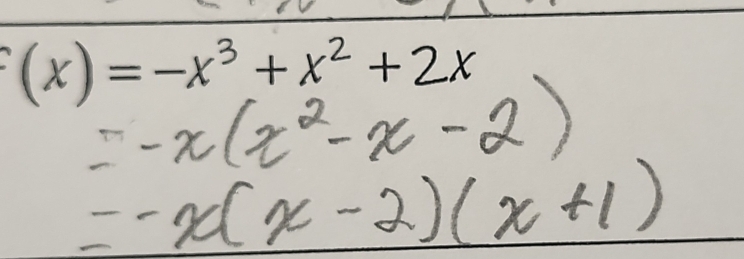 f(x) = -x³ + x² + 2x
= -x(x² - x - 2)
= -x(x - 2)(x + 1)